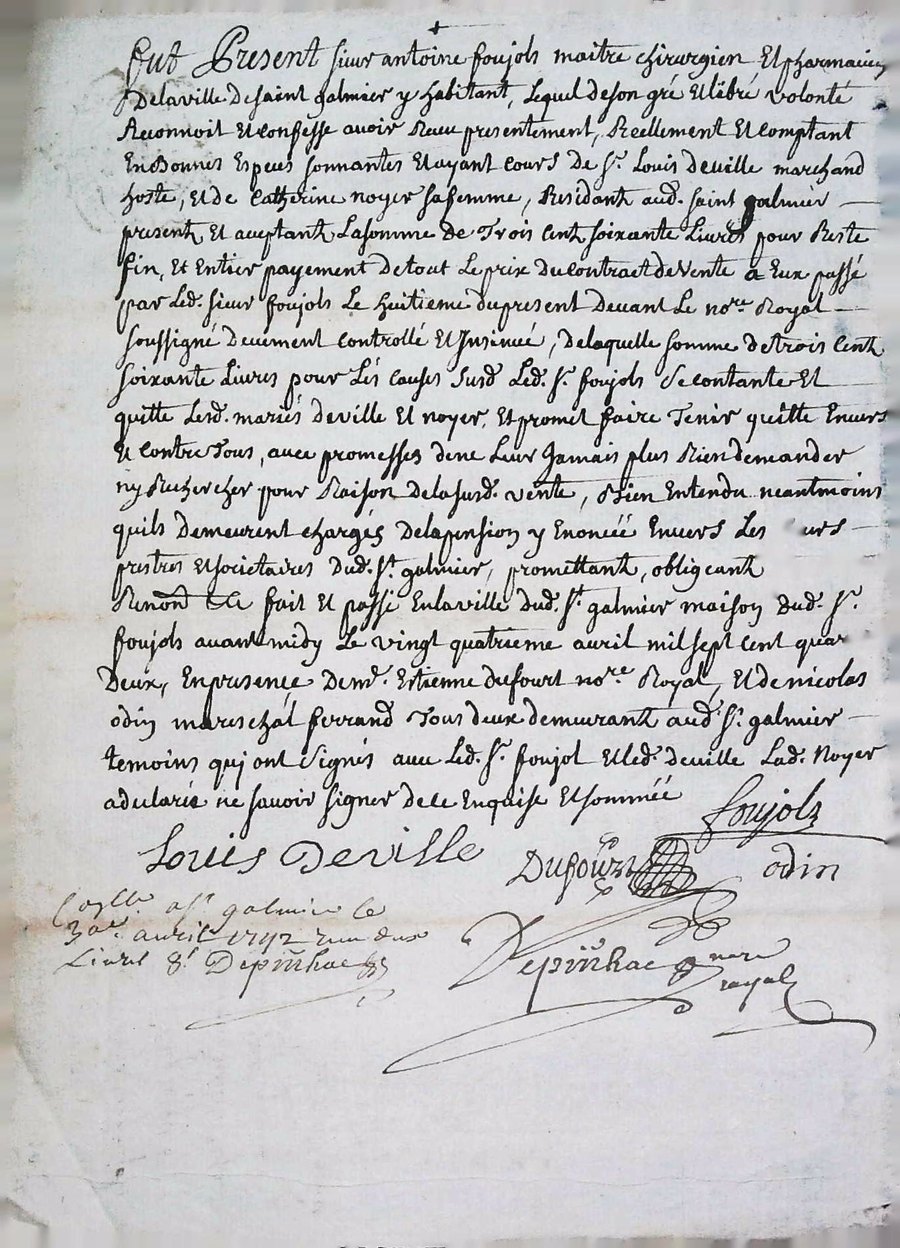 fut Present sieur antoine foujols maitre chirurgien Et pharmacien
Delaville Desaint galmier y habitant, Lequel deson gré Et libre volonté
Reconnoit Et Confesse avoir Receu presentement, Reellement Et Comptant
En Bonnes Especes sonnantes Et ayant Cours De Sr. Louis Deville marchand
hoste, Et De Catherine noyer safemme, Residant aud. saint galmier
present Et aceptant Lasomme de Trois Cent soixante Livres pour Reste
fin, Et Entier payement De tout Le prix Du Contract de Vente a Eux passé
par Led. sieur foujols Le huitieme du present Devant Le nore. Royal
soussigné Deuement Controllé Et Insinué, De laquelle somme de trois Cent
soixante Livres pour Lés Causes Susd. Led. Sr. foujols Se Contante Et
quitte Lesd. mariés Deville Et noyer, Et promet faire Tenir quitte Envers
Et Contre Tous, avec promesses de ne Leur Jamais plus Rien demander
ny Rechercher pour Raison De la susd. vente, Bien Entendu neantmoins
quils Demeurent chargés De la pension y Enoncéé Envers Les urs
prestres Et societaires Dud. St. galmier, promettant, obligeant
Renond. &a fait Et passé En la ville Dud. St. galmier maison Dud. Sr.
foujols avant midy Le vingt quatrieme avril mil sept Cent quar
Deux, En presence De me. Estienne Dufourt nore. Royal, Et de nicolas
odin mareschal ferrand Tous deux demeurant aud. St. galmier
temoins qui ont signés avec Led. Sr. foujol Et Led. Deville Lad. Noyer
a declaré ne savoir signer de ce Enquise Et sommée
foujols
Louis Deville
Dufour
odin
a St galmier le
30e. avril 1742
Livres 8s Depinhac
Depinhac nore
royal